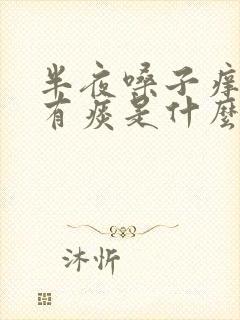 半夜嗓子痒
有痰是什麽
沐忻